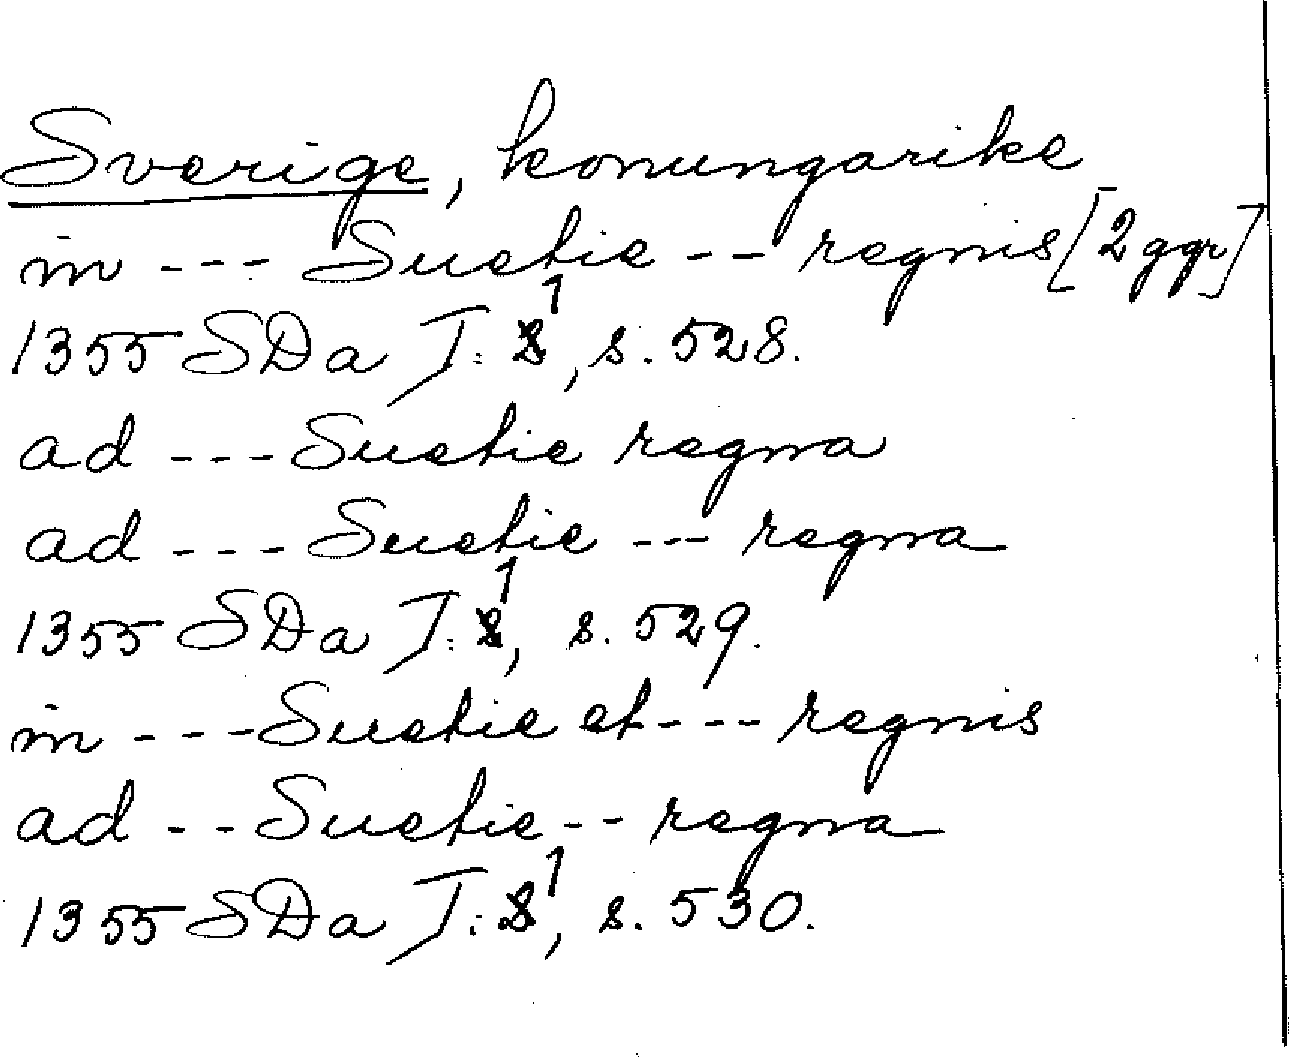 Sverige, konungarike
in --- Suetie -- regnis [2 ggr]
1355 SDa I: 1, s. 528.
ad --- Suetie regna
ad --- Suetie --- regna
1355 SDa I: 1, s. 529.
in --- Suetie et --- regnis
ad -- Suetie -- regna
1355 SDa I: 1, s. 530.